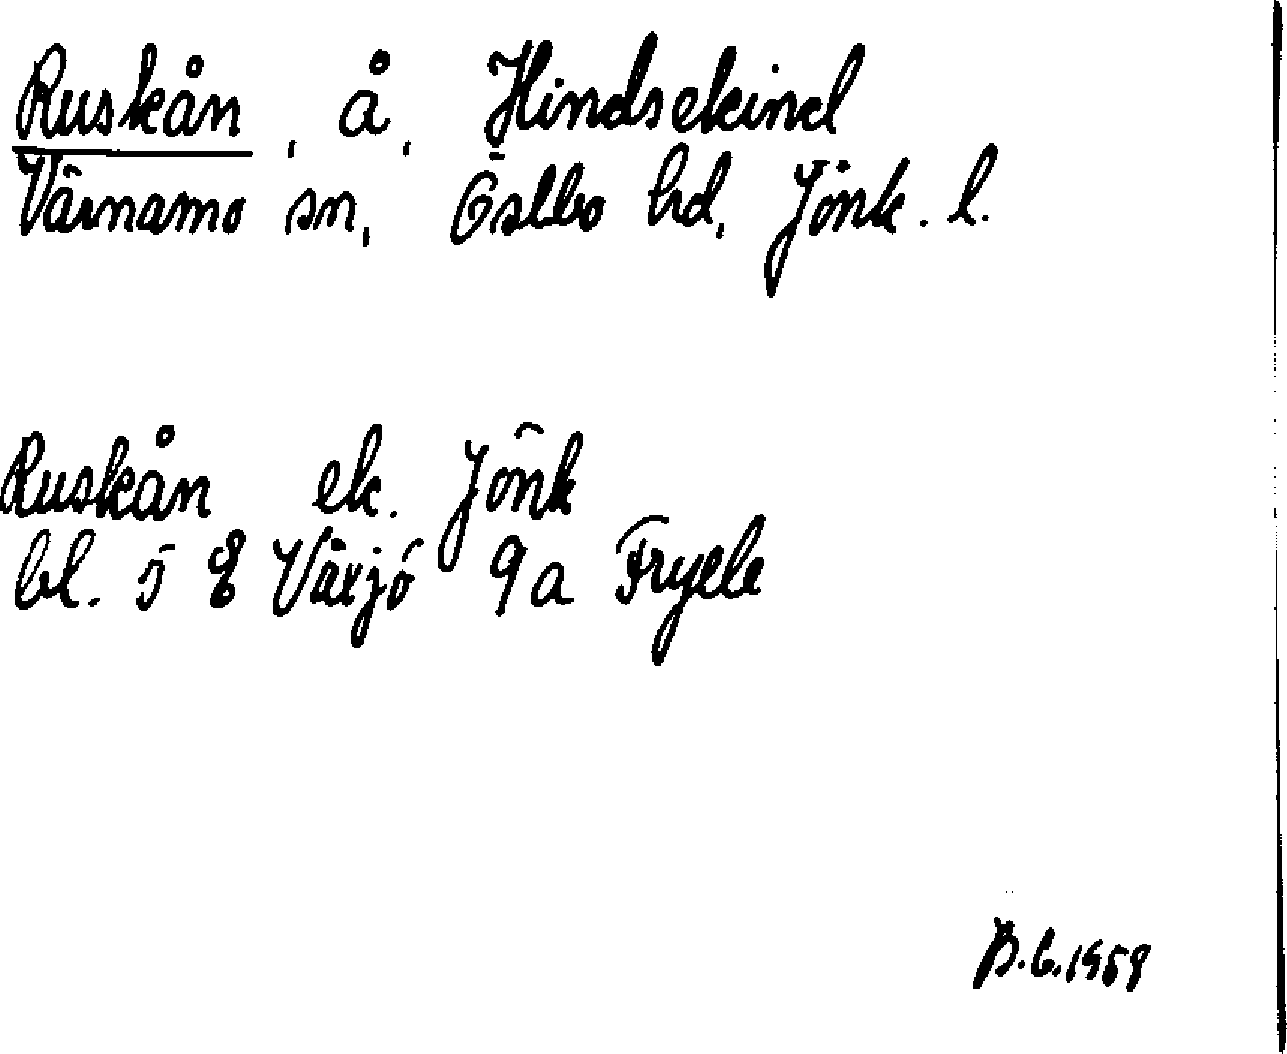 Ruskån, å, Hindsekind
Värnamo sn, Östbo hd, Jönk. l.
Ruskån ek. Jönk
bl. 5 E Växjö 9a Fryele
B.G.1959